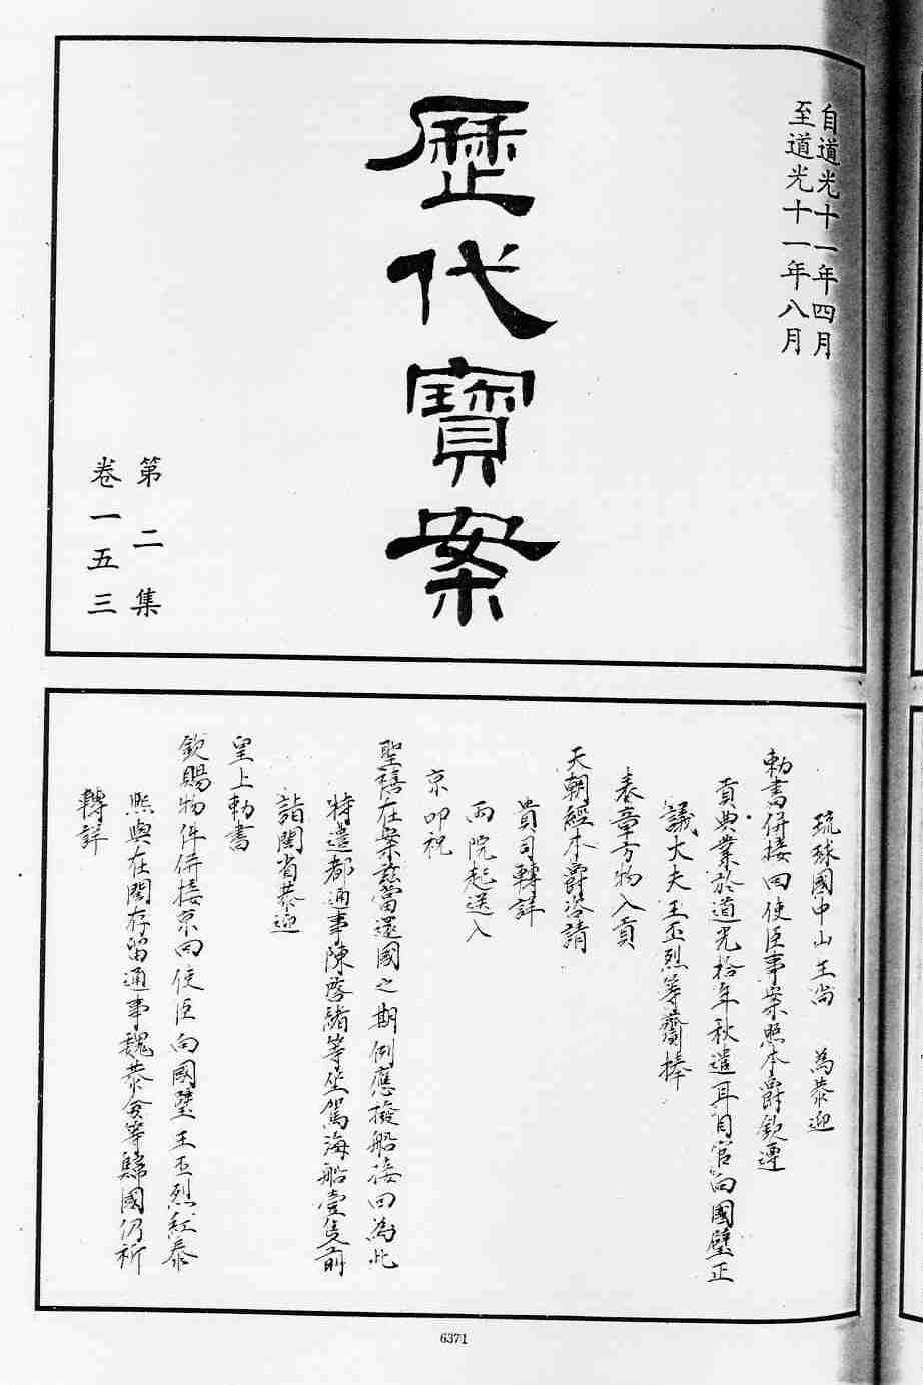 自道光十一年四月
至道光十一年八月
歷代寶案
第二集
卷一五三
琉球國中山王尚　為恭迎
勅書併接回使臣事案照本爵欽遵
貢典業於道光拾年秋遣耳目官向國璧正
議大夫王丕烈等齎捧
奏章方物入貢
天朝經本爵咨請
貴司轉詳
兩院起送入
京叩祝
聖禧在案茲當還國之期例應撥船接回為此
特遣都通事陳啓緒等坐駕海船壹隻前
詣閩省恭迎
皇上勅書
欽賜物件併接京回使臣向國璧王丕烈紅泰
熙與在閩存留通事魏恭等歸國仍祈
轉詳
6371